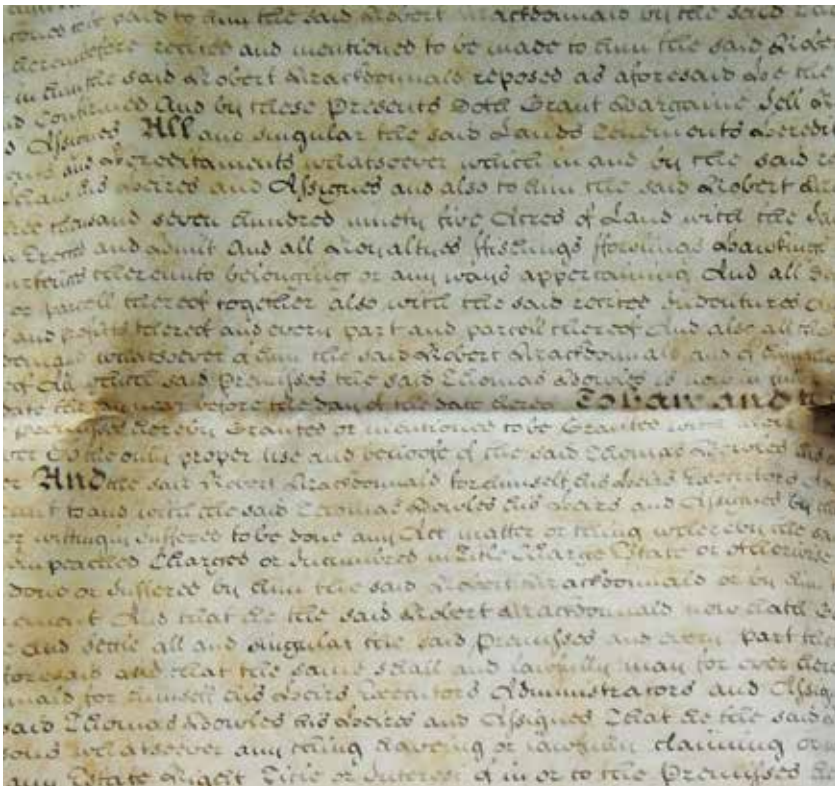 paid to him the said Robert Mackdonnald by the said
herembefore recited and mentioned to be made to him the said
in him the said Robert Mackdonnald reposed as aforesaid the
Confirmed And by these Presents Doth Grant Bargaine Sell
Assignes All and singular the said Lands Tenements
and Hereditaments whatsoever which in and by the said
his Heires and Assignes and also to him the said Robert
thousand seven hundred ninety five Acres of Land with the
and admit And all Royaltyes ffishings ffowlings Hawkings
thereunto belonging or any ways appertaining And all
or parcell thereof together also with the said recited Indentures
and profitts thereof and every part and parcell thereof And also all the
whatsoever of him the said Robert Mackdonnald and of
of All which said Premisses the said Thomas Bowles is now in
date the day next before the day of the date hereof To have and to
Premisses hereby Granted or mentioned to be Granted with their
to the only proper use and behoofe of the said Thomas Bowles his
And the said Robert Mackdonnald for himself his Heirs Executors
to and with the said Thomas Bowles his Heirs and Assignes by
or wittingly suffered to be done any Act matter or thing whereby the said
Impeached Charged or Incumbred in Title Charge Estate or otherwise
done or suffered by him the said Robert Mackdonnald or by him
And that he the said Robert Mackdonnald now hath
and settle all and singular the said Premisses and every part
aforesaid and that the same shall and lawfully may for ever
for himself his Heirs Executors Administrators and Assignes
said Thomas Bowles his Heires and Assignes That he the said
whatsoever any thing haveing or lawfully claiming or
any Estate Right Title or Interest of in or to the Premisses